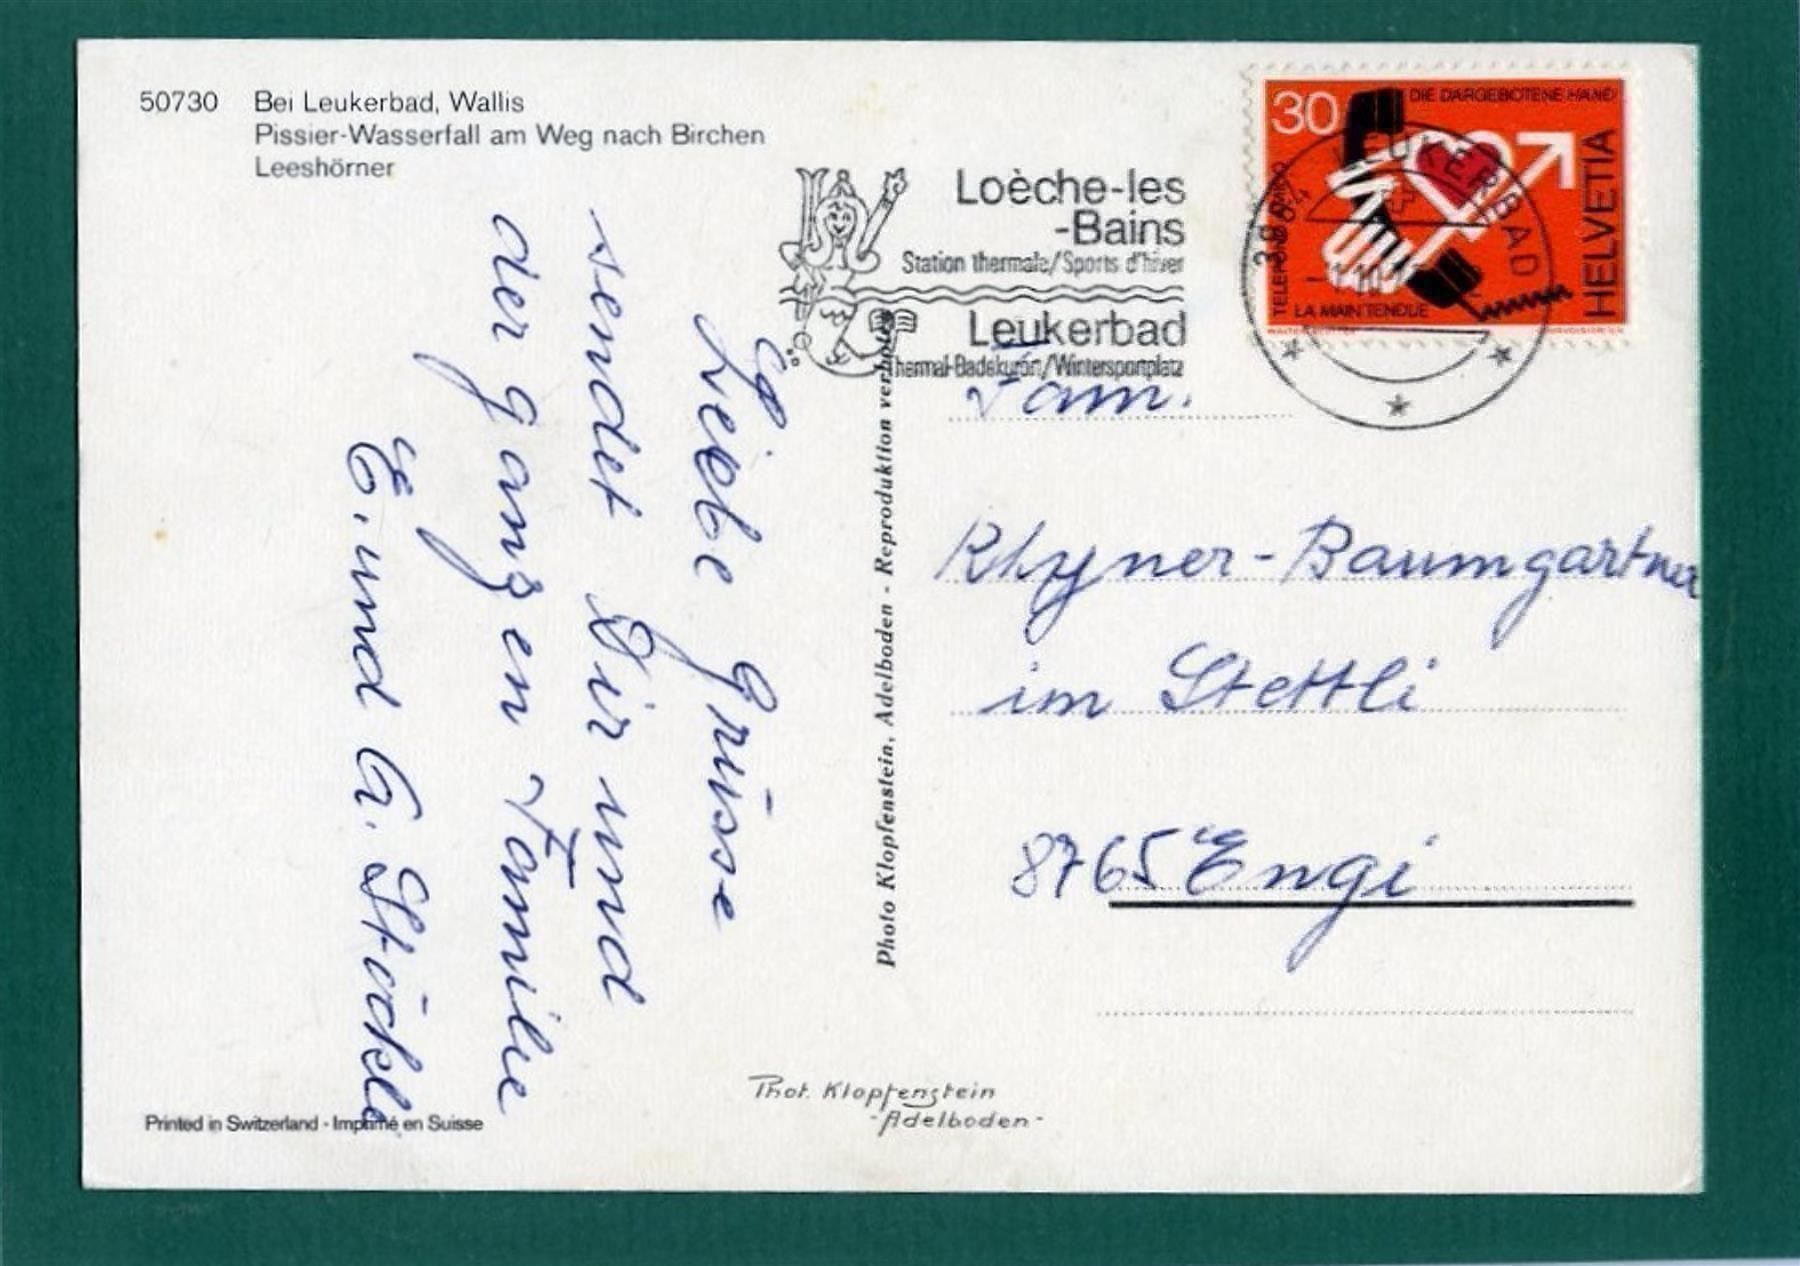 50730 Bei Leukerbad, Wallis
Pissier-Wasserfall am Weg nach Birchen
Leeshörner
Loèche-les
-Bains
Station thermale/Sports d'hiver
Leukerbad
Thermal-Badekurort/Wintersportplatz
30
DIE DARGEBOTENE HAND
HELVETIA
LA MAIN TENDUE
TELEFONO AMICO
3954 LEUKERBAD
Liebe Grüsse
sendet Dir und
der ganzen Familie
E. und G. Stöckli
Photo Klopfenstein, Adelboden - Reproduktion verboten
Fam.
Rhyner-Baumgartner
im Stettli
8765 Engi
Phot. Klopfenstein
-Adelboden-
Printed in Switzerland - Imprimé en Suisse